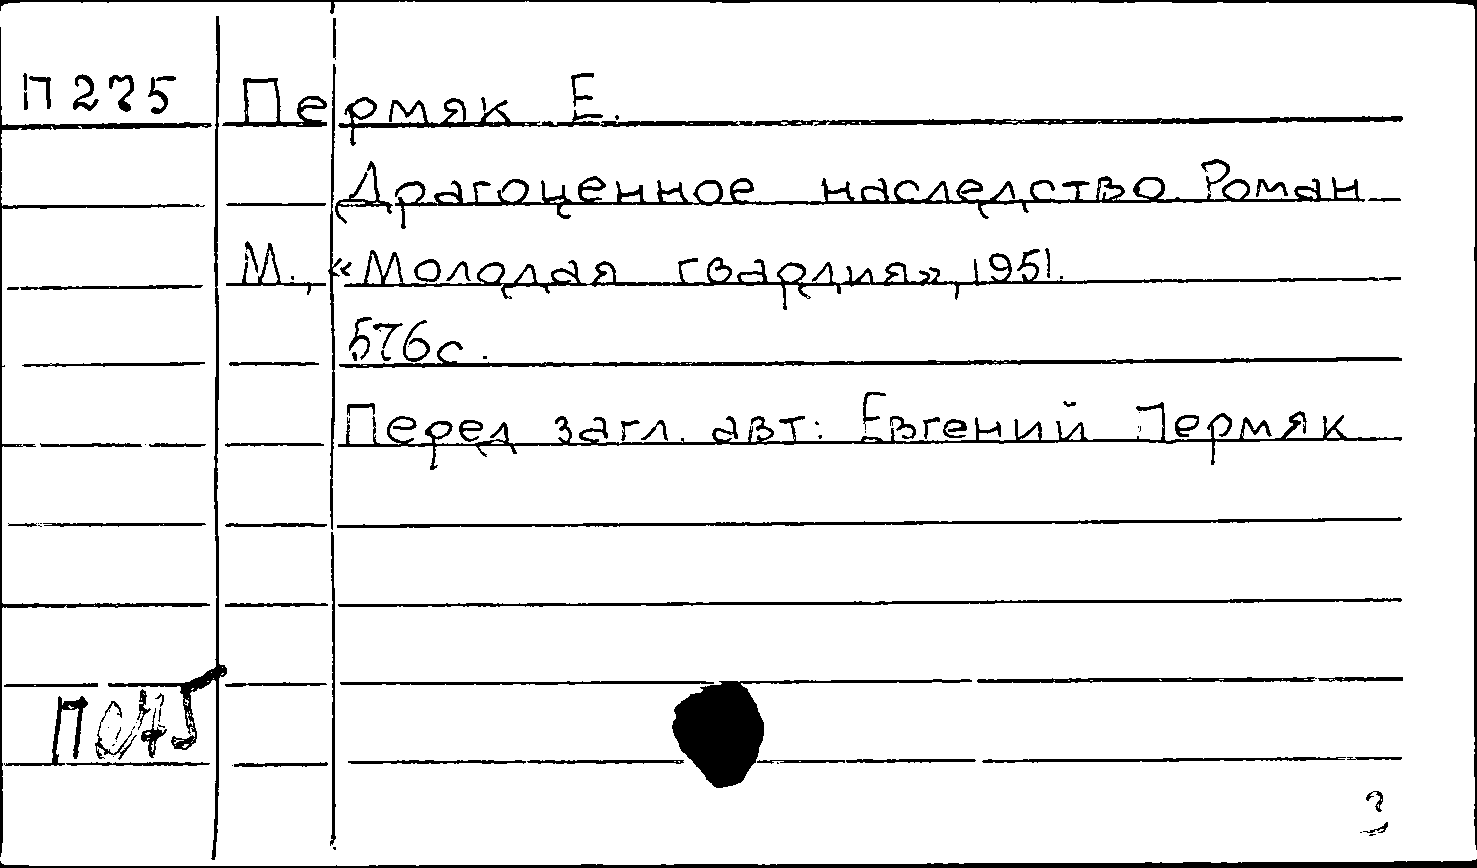 П 275 Пермяк Е.
Драгоценное наследство. Роман
М., «Молодая гвардия», 1951.
576с.
Перед загл. авт: Евгений Пермяк